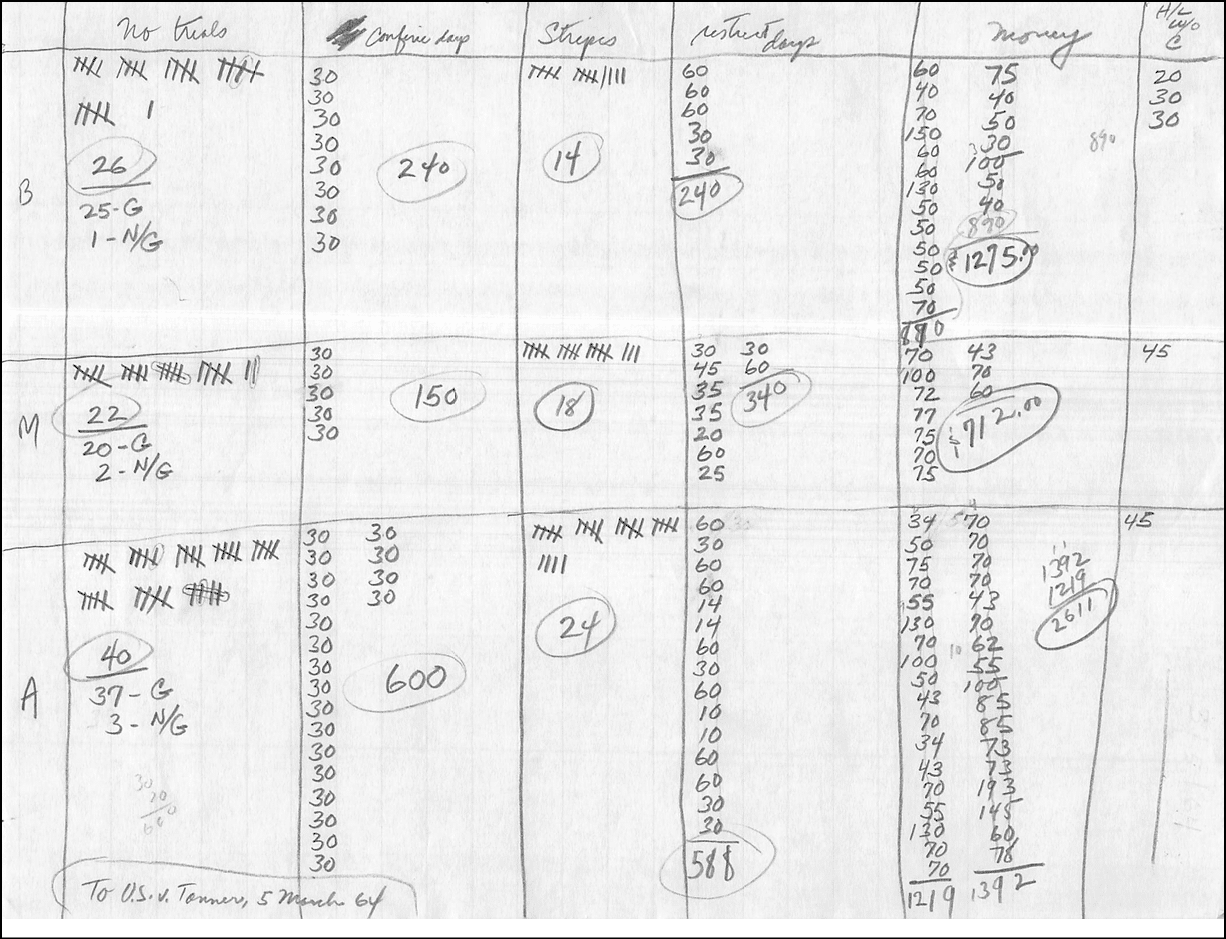 No trials
Confine days
Stripes
restrict days
Money
H/L
w/o
C
B
卌 卌 卌 卌
卌 |
26
25-G
1-N/G
30
30
30
30
30
30
30
30
240
卌 卌 ||||
14
60
60
60
30
30
240
60
40
70
150
60
60
130
50
50
50
50
50
70
890
75
40
50
30
100
50
40
890
$1275.00
890
20
30
30
M
卌 卌 卌 卌 ||
22
20-G
2-N/G
30
30
30
30
30
150
卌 卌 卌 |||
18
30 30
45 60
35
35
20
60
25
340
70
100
72
77
75
70
75
43
70
60
$712.00
45
A
卌 卌 卌 卌 卌
卌 卌 卌
40
37-G
3-N/G
30
20
30 30
30 30
30 30
30 30
30
30
30
30
30
30
30
30
30
30
30
30
600
卌 卌 卌 卌
||||
24
60
30
60
60
14
14
60
30
60
10
10
60
60
30
30
588
34
50
75
70
55
130
70
100
50
43
70
34
43
70
55
130
70
70
1219
70
70
70
70
43
70
62
55
100
85
85
73
73
193
145
60
78
1392
1392
1219
2611
45
To U.S. v. Tanner, 5 March 64